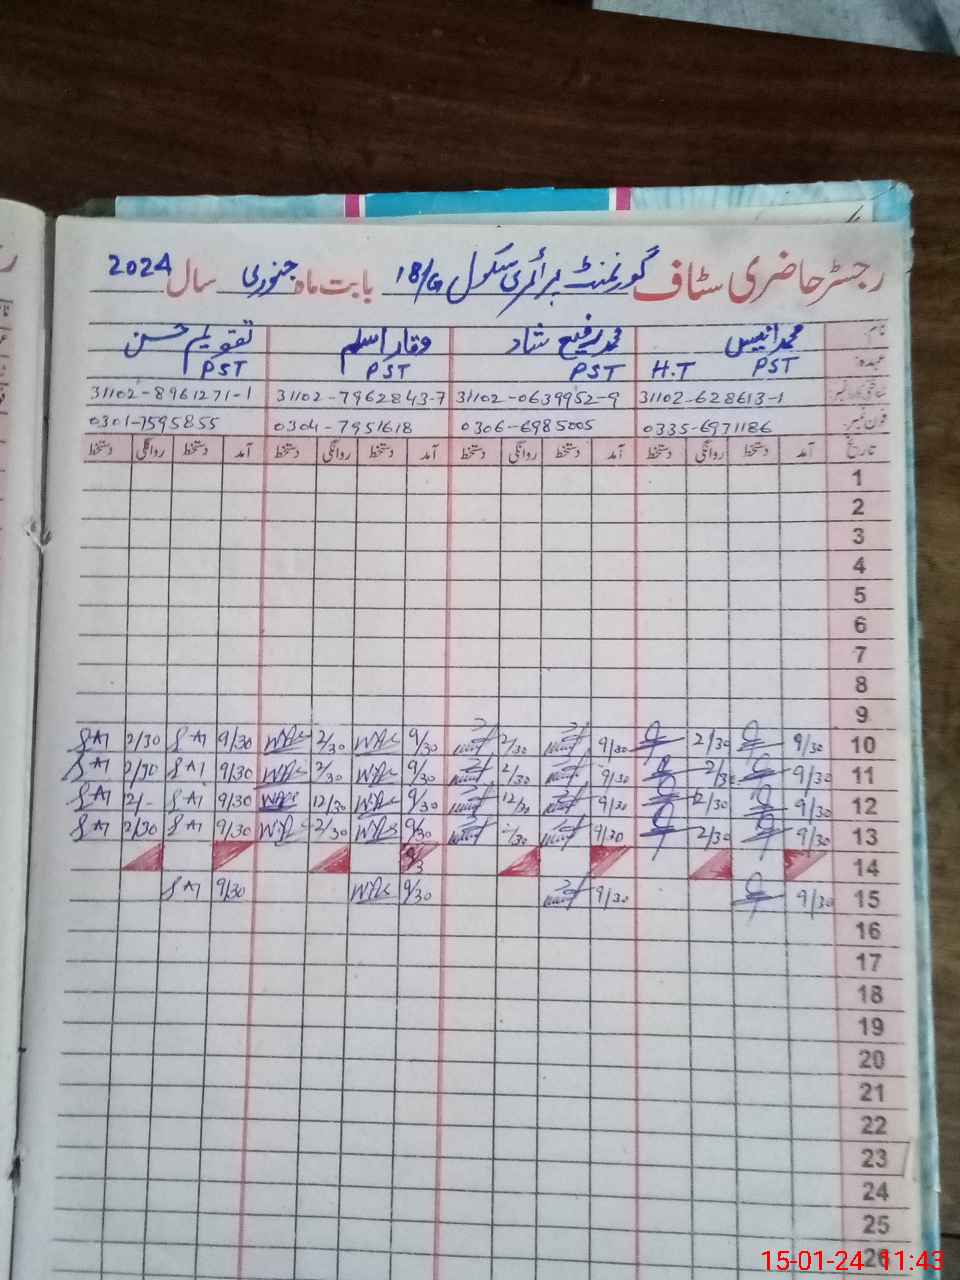 رجسٹر حاضری سٹاف گورنمنٹ پرائمری سکول 18/G بابت ماہ جنوری سال 2024
نام محمد انیس محمد رفیع شاد وقار اسلم تقویم حسن
عہدہ PST H.T PST PST PST
شناختی کارڈ نمبر 31102-628613-1 31102-0639952-9 31102-7962843-7 31102-8961271-1
فون نمبر 0335-6971186 0306-6985005 0304-7951618 0301-7595855
تاریخ آمد دستخط روانگی دستخط آمد دستخط روانگی دستخط آمد دستخط روانگی دستخط آمد دستخط روانگی دستخط
1
2
3
4
5
6
7
8
9
10 9/30 2/30 9/30 2/30 9/30 2/30 9/30 2/30
11 9/30 2/30 9/30 2/30 9/30 2/30 9/30 2/30
12 9/30 12/30 9/30 12/30 9/30 12/30 9/30 12/-
13 9/30 2/30 9/30 2/30 9/30 2/30 9/30 2/30
14 9/3
15 9/30 9/30 9/30 9/30
16
17
18
19
20
21
22
23
24
25
26
15-01-24 11:43